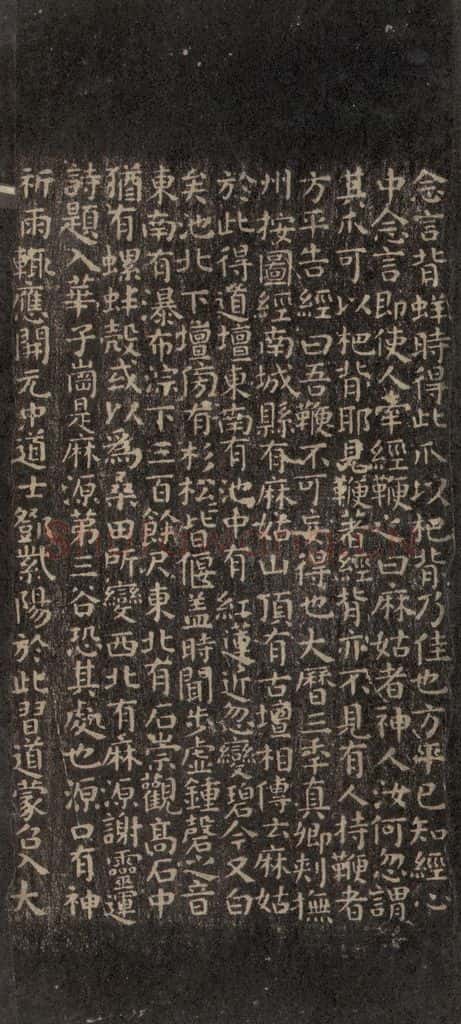 念言背蛘時得此爪以杷背乃佳也方平已知經心
中念言即使人牽經鞭之曰麻姑者神人汝何忽謂
其爪可以杷背耶見鞭著經背亦不見有人持鞭者
方平告經曰吾鞭不可妄得也大曆三年真卿刺撫
州按圖經南城縣有麻姑山頂有古壇相傳云麻姑
於此得道壇東南有池中有紅蓮近忽變碧今又白
矣池北下壇傍有杉松皆偃蓋時聞步虛鍾磬之音
東南有瀑布淙下三百餘尺東北有石崇觀高石中
猶有螺蚌殼或以爲桑田所變西北有麻源謝靈運
詩題入華子崗是麻源第三谷恐其處也源口有神
祈雨輒應開元中道士鄧紫陽於此習道蒙召入大